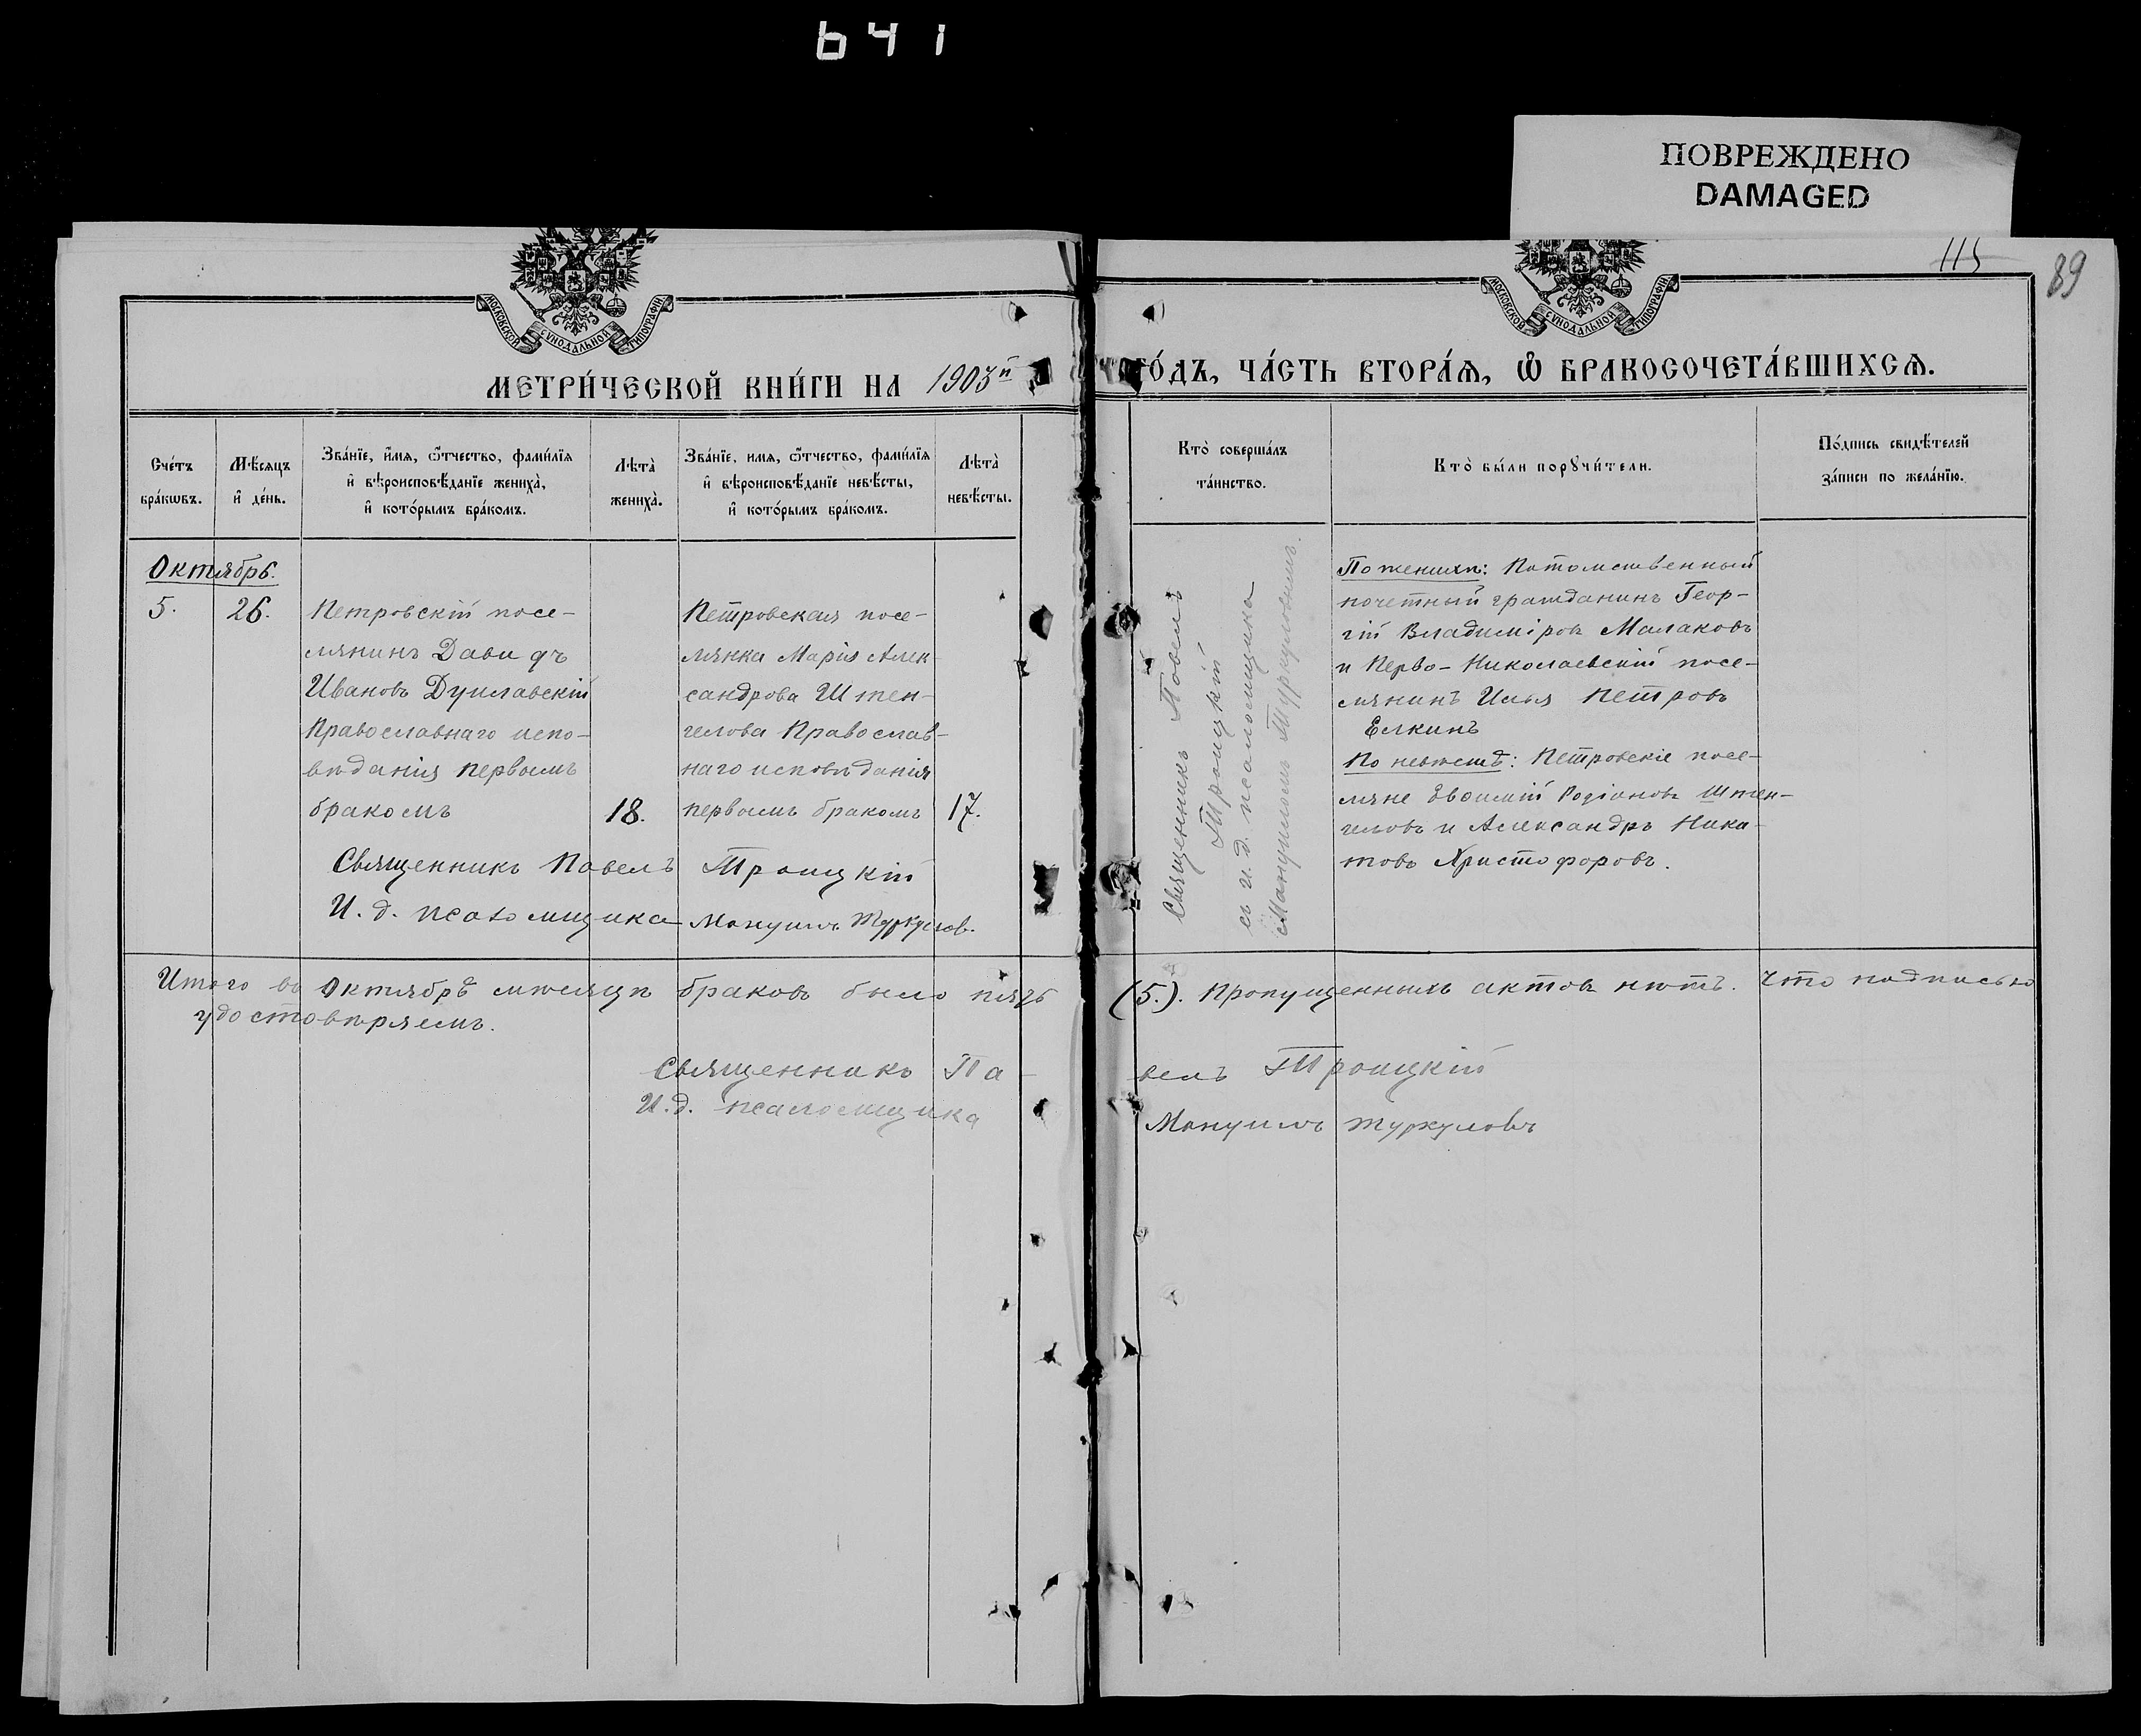 641
ПОВРЕЖДЕНО
DAMAGED
115
89
МОСКОВСКОЙ СѴНОДАЛЬНОЙ ТИПОГРАФІИ
МОСКОВСКОЙ СѴНОДАЛЬНОЙ ТИПОГРАФІИ
МЕТРИ́ЧЕСКОЙ КНИ́ГИ НА 1903й
ГО́ДЪ, ЧА́СТЬ ВТОРА́Ѧ, Ѽ БРАКОСОЧЕТА́ВШИХСѦ.
Сче́тъ бра́кѡвъ.
Мѣ́сяцъ и де́нь.
Зва́нїе, и́мѧ, ѻ҆́тчество, фами́лїѧ
и҆ вѣроисповѣ́данїе жениха̀,
и҆ кото́рымъ бра́комъ.
Лѣта̀ жениха̀.
Зва́нїе, имѧ, ѻ҆́тчество, фами́лїѧ
и҆ вѣроисповѣ́данїе невѣ́сты,
и҆ кото́рымъ бра́комъ.
Лѣта̀ невѣ́сты.
Кто̀ соверша́лъ
та́инство.
Кто̀ бы́ли порꙋчи́тели.
По́дпись свидѣ́телей
за́писи по жела́нїю.
Октябрь.
5.
26.
Петровскій посе-
лянинъ Давидъ
Ивановъ Дуплавскій
Православнаго испо-
вѣданія первымъ
бракомъ
18.
Петровская посе-
лянка Марія Алек-
сандрова Штен-
гелова Православ-
наго исповѣданія
первымъ бракомъ
17.
Священникъ Павелъ Троицкій
И. д. псаломщика Мануилъ Туркулов.
Священникъ Павелъ
Троицкій
съ и. д. псаломщика
Мануиломъ Туркуловымъ.
По женихѣ: Потомственный
почетный гражданинъ Геор-
гій Владиміровъ Малаковъ
и Перво-Николаевскій посе-
лянинъ Илья Петровъ
Елкинъ
По невѣстѣ: Петровскіе посе-
ляне Евфимій Родіоновъ Штен-
геловъ и Александръ Ники-
товъ Христофоровъ.
Итого въ Октябрѣ мѣсяцѣ браковъ было пять (5.). Пропущенныхъ актовъ нѣтъ. Что подписью
удостовѣряемъ.
Священникъ Павелъ Троицкій
И. д. псаломщика Мануилъ Туркуловъ